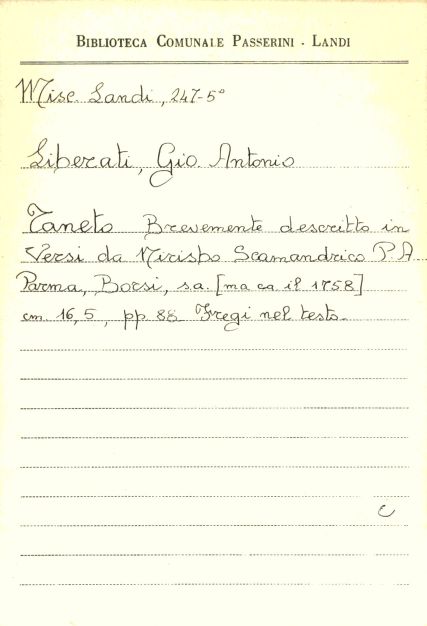 BIBLIOTECA COMUNALE PASSERINI - LANDI
Misc Landi, 247-5°
Liberati, Gio. Antonio
Taneto Brevemente descritto in
Versi da Nirisbo Scamandrico P.A.
Parma, Borsi, s.a. [ma ca il 1758]
cm. 16,5, pp. 88 Fregi nel testo.
C